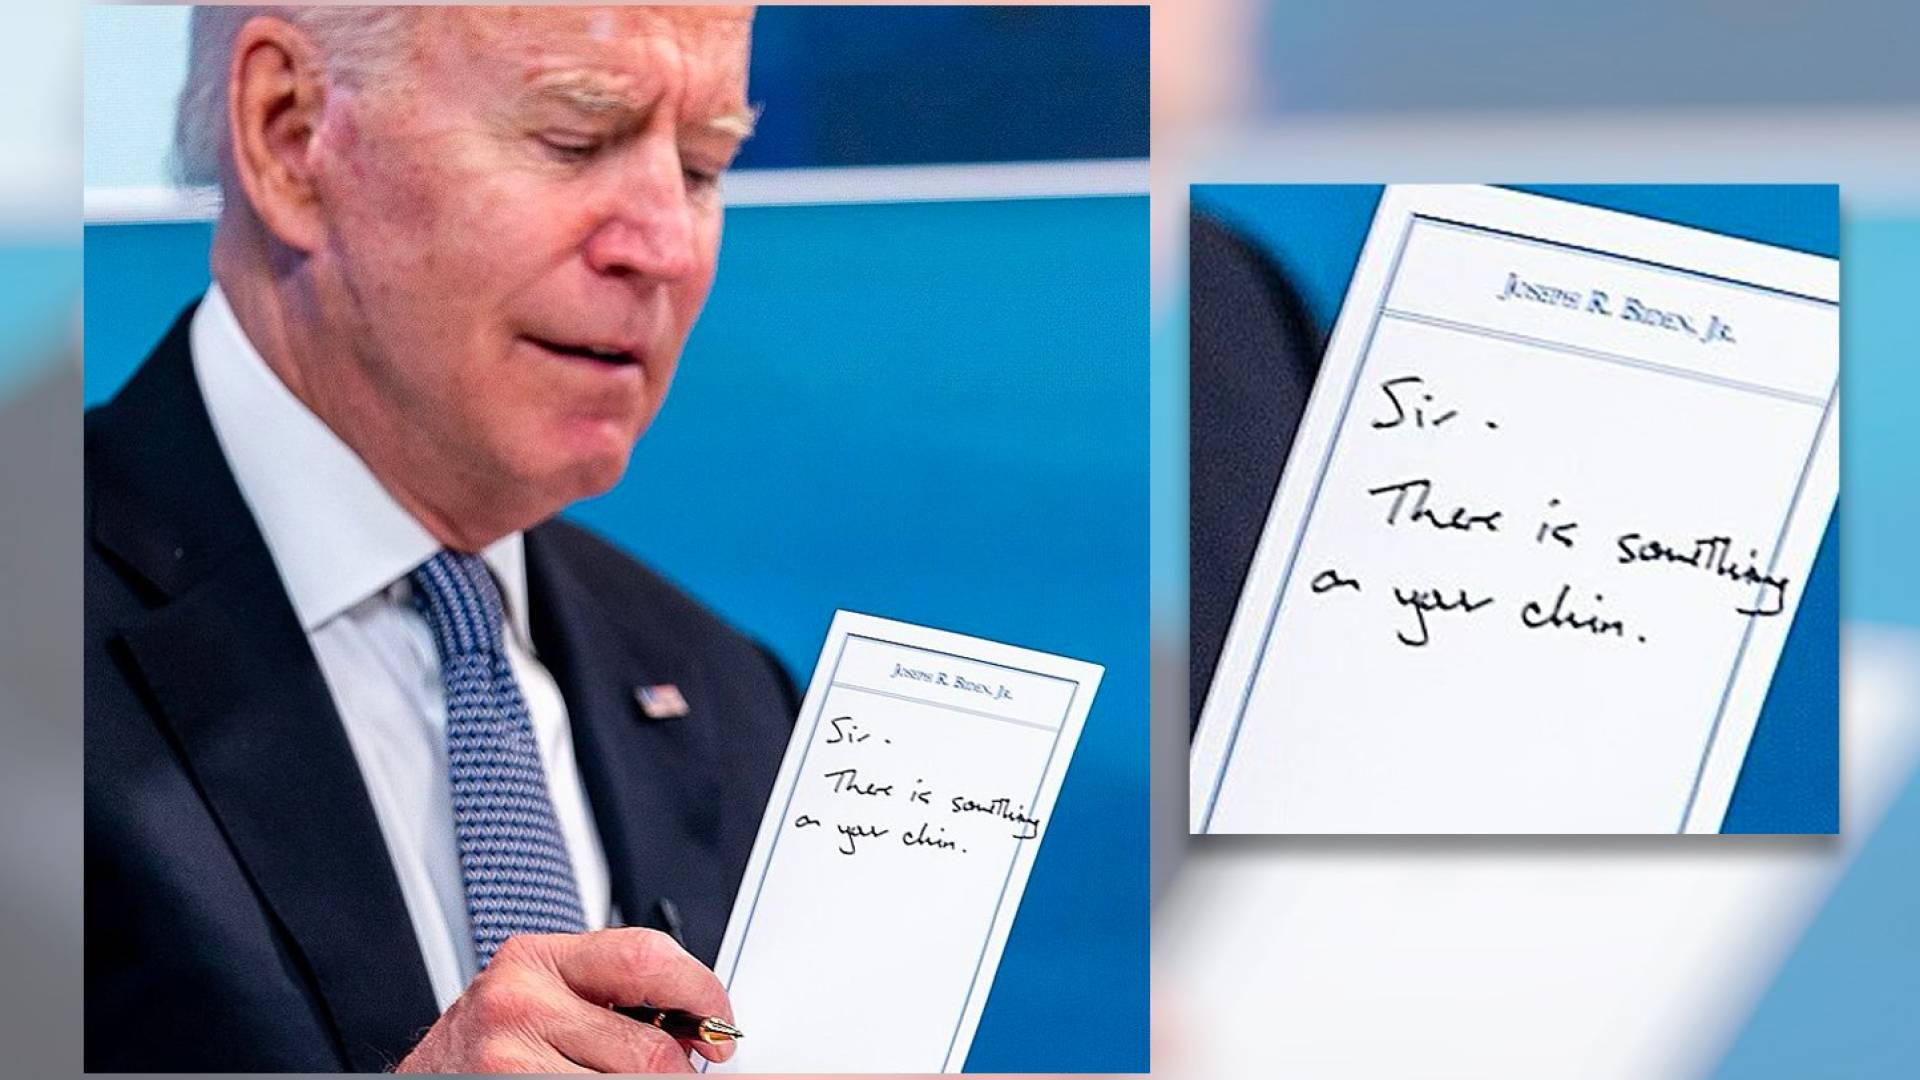 JOSEPH R. BIDEN, JR.
Sir.
There is something
on your chin.
JOSEPH R. BIDEN, JR.
Sir.
There is something
on your chin.